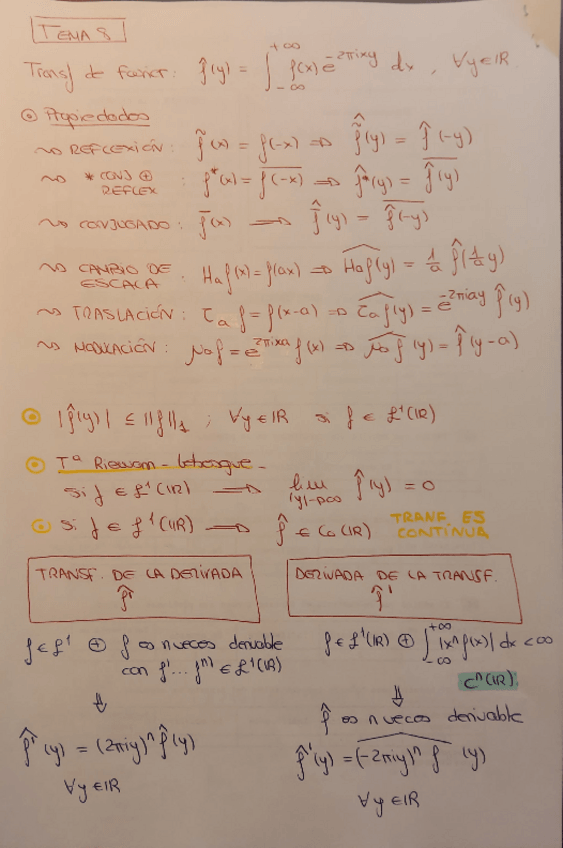 TEMA 8
Transf de Fourier: f̂(y) = ∫_{-∞}^{+∞} f(x) e^{-2πixy} dx , ∀y∈ℝ
⊙ Propiedades
~> REFLEXIÓN: f̃(x) = f(-x) ⇒ \hat{f̃}(y) = f̂(-y)
~> * CONJ ⊕ REFLEX : f*(x) = \overline{f(-x)} ⇒ \hat{f*}(y) = \overline{f̂(y)}
~> CONJUGADO: \overline{f}(x) ⇒ \hat{\overline{f}}(y) = \overline{f̂(-y)}
~> CAMBIO DE ESCALA : Haf(x) = f(ax) ⇒ \widehat{Haf}(y) = 1/a f̂(1/a y)
~> TRASLACIÓN: τ_a f = f(x-a) ⇒ \widehat{τ_a f}(y) = e^{-2πiay} f̂(y)
~> MODULACIÓN: μ_a f = e^{2πixa} f(x) ⇒ \widehat{μ_a f}(y) = f̂(y-a)
⊙ |f̂(y)| ≤ ||f||₁ ; ∀y∈ℝ si f ∈ ℒ¹(ℝ)
⊙ Tª Riemann-Lebesgue.
si f ∈ ℒ¹(ℝ) ⇒ lim_{|y|→∞} f̂(y) = 0
⊙ si f ∈ ℒ¹(ℝ) ⇒ f̂ ∈ C₀(ℝ) TRANF. ES CONTÍNUA
TRANSF. DE LA DERIVADA
\hat{f'}
DERIVADA DE LA TRANSF.
f̂'
f ∈ ℒ¹ ⊕ f es n veces derivable
con f'... f^{n)} ∈ ℒ¹(ℝ)
⇓
\hat{f'}(y) = (2πiy)ⁿ f̂(y)
∀y∈ℝ
f ∈ ℒ¹(ℝ) ⊕ ∫_{-∞}^{+∞} |xⁿ f(x)| dx < ∞
Cⁿ(ℝ)
⇓
f̂ es n veces derivable
f̂'(y) = \widehat{(-2πiy)ⁿ f}(y)
∀y∈ℝ